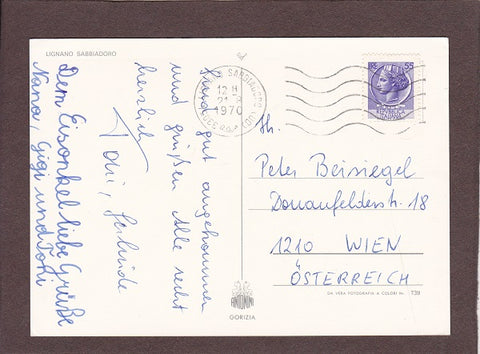 LIGNANO SABBIADORO
Sind gut angekommen
und grüßen Alle recht
herzlich
Toni, Gerlinde
Dem Eisonkel liebe Grüße
Nana, Gigi und Toni
12 H
1970
55
Hr.
Peter Beinsiegel
Donaufelderstr. 18
1210 WIEN
ÖSTERREICH
GORIZIA
DA VERA FOTOGRAFIA A COLORI Nr. 738